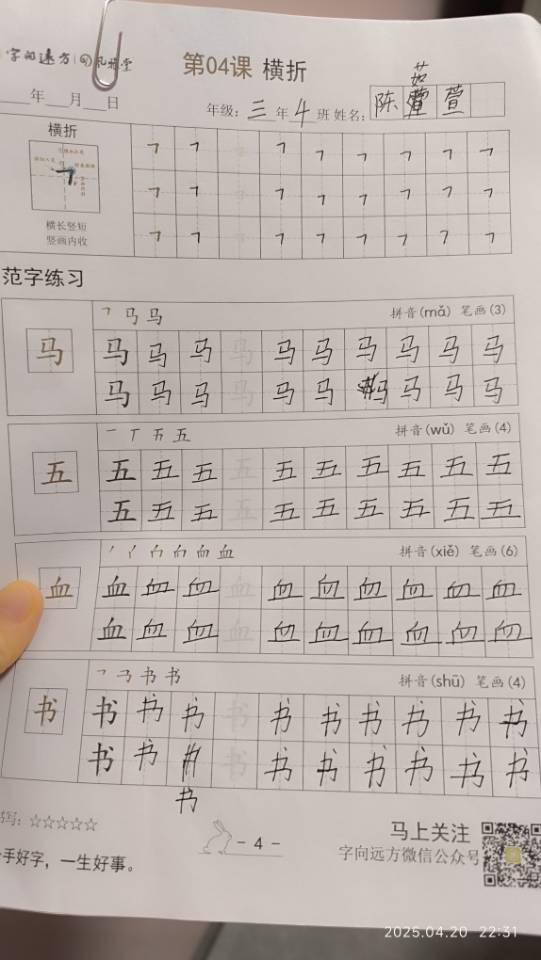 字向远方
第04课 横折
年 月 日
年级：三年4班 姓名：陈茹萱
横折
横长竖短
竖画内收
范字练习
㇕ 马 马 拼音(mǎ) 笔画(3)
马 马 马 马 马 马 马 马 马 马 马
马 马 马 马 马 马 马 马 马 马
一 丅 五 拼音(wǔ) 笔画(4)
五 五 五 五 五 五 五 五 五 五 五
五 五 五 五 五 五 五 五 五 五
血 拼音(xiě) 笔画(6)
血 血 血 血 血 血 血 血 血 血 血
血 血 血 血 血 血 血 血 血 血
书 书 拼音(shū) 笔画(4)
书 书 书 书 书 书 书 书 书 书 书
书 书 书 书 书 书 书 书 书
书
书写：☆☆☆☆☆
手好字，一生好事。
- 4 -
马上关注
字向远方微信公众号
2025.04.20 22:31